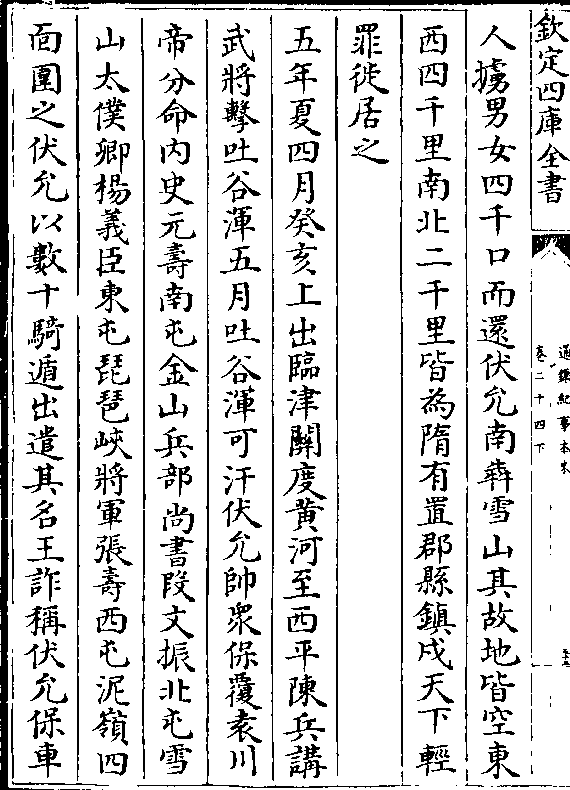 欽定四庫全書
通鑑紀事本末
卷二十四下
人擄男女四千口而還伏允南犇雪山其故地皆空東
西四千里南北二千里皆為隋有置郡縣鎮戍天下輕
罪徙居之
五年夏四月癸亥上出臨津關度黄河至西平陳兵講
武將擊吐谷渾五月吐谷渾可汗伏允帥衆保覆袁川
帝分命内史元壽南屯金山兵部尚書段文振北屯雪
山太僕卿楊義臣東屯琵琶峽將軍張壽西屯泥嶺四
面圍之伏允以數十騎遁出遣其名王詐稱伏允保車